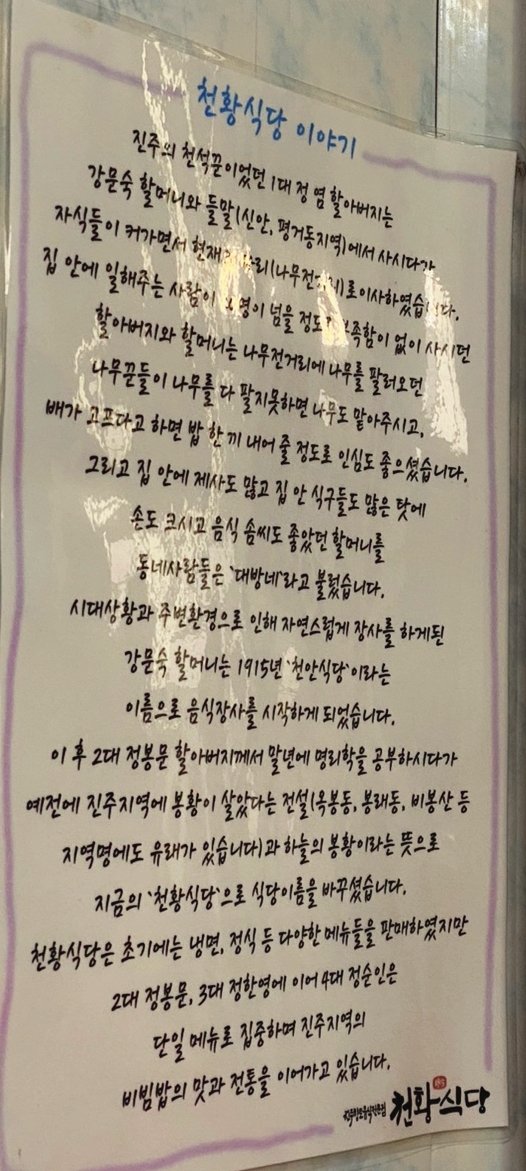 천황식당 이야기
진주의 천석꾼이었던 1대 정 염 할아버지는
강문숙 할머니와 들말(신안, 평거동지역)에서 사시다가
자식들이 커가면서 현재 (나무전거리)로이사하였습니다.
집 안에 일해주는 사람이 명이 넘을 정도로 부족함이 없이 사시던
할아버지와 할머니는 나무전거리에 나무를 팔러오던
나무꾼들이 나무를 다 팔지못하면 나무도 맡아주시고,
배가 고프다고 하면 밥 한 끼 내어 줄 정도로 인심도 좋으셨습니다.
그리고 집 안에 제사도 많고 집 안 식구들도 많은 탓에
손도 크시고 음식 솜씨도 좋았던 할머니를
동네사람들은 '대방네'라고 불렀습니다.
시대상황과 주변환경으로 인해 자연스럽게 장사를 하게된
강문숙 할머니는 1915년 '천안식당'이라는
이름으로 음식장사를 시작하게 되었습니다.
이 후 2대 정봉문 할아버지께서 말년에 명리학을 공부하시다가
예전에 진주지역에 봉황이 살았다는 전설(옥봉동, 봉래동, 비봉산 등
지역명에도 유래가 있습니다)과 하늘의 봉황이라는 뜻으로
지금의 '천황식당'으로 식당이름을 바꾸셨습니다.
천황식당은 초기에는 냉면, 정식 등 다양한 메뉴들을 판매하였지만
2대 정봉문, 3대 정한영에 이어 4대 정순인은
단일 메뉴로 집중하며 진주지역의
비빔밥의 맛과 전통을 이어가고 있습니다.
천황식당